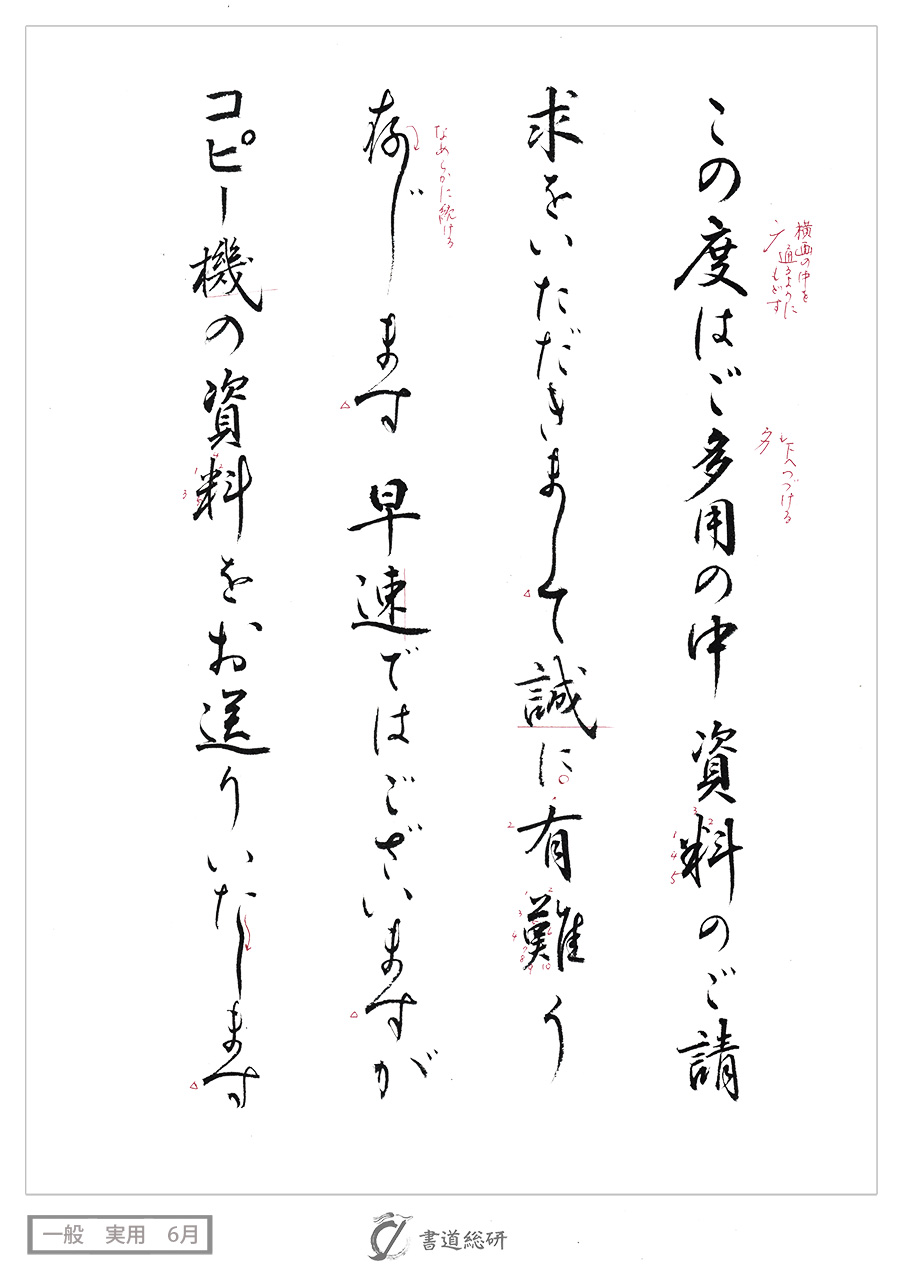 この度はご多用の中資料のご請
求をいただきまして誠に有難う
存じます 早速ではございますが
コピー機の資料をお送りいたします
横画の中を
通るように
もどす
下へつづける
なめらかに続ける
一般 実用 6月
書道総研